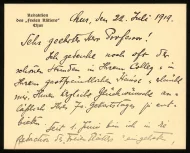 Redaktion
des „freien Rätiers"
Chur
Chur, den 22. Juli 1919.
Sehr geehrter Herr Professor!
Ich gedenke noch oft der
schönen Stunden in Ihrem Colleg & in
Ihrem gastfreundlichen Hause,
Ihnen herzliche Glückwünsche
Ihres Geburtstages
Seit 1. Juni bin ich in der
Redaktion des freien Rätiers